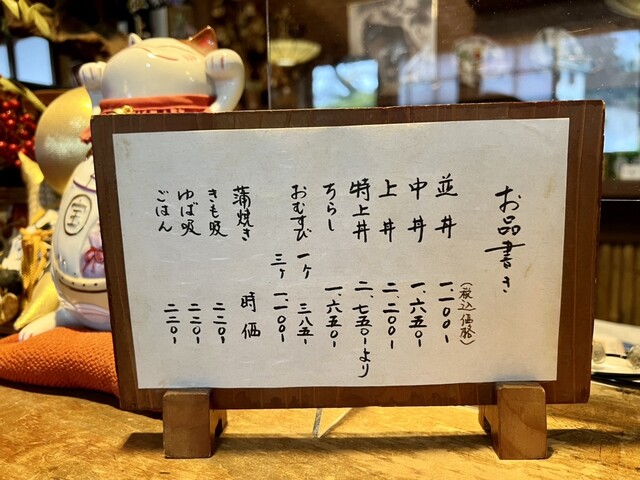 お品書き
(税込価格)
並丼 一、一〇〇-
中丼 一、六五〇-
上丼 二、二〇〇-
特上丼 二、七五〇-より
ちらし 一、六五〇-
おむすび 一ヶ 三八五-
三ヶ 一、一〇〇-
蒲焼き 時価
きも吸 二二〇-
ゆば吸 二二〇-
ごはん 二二〇-
宝